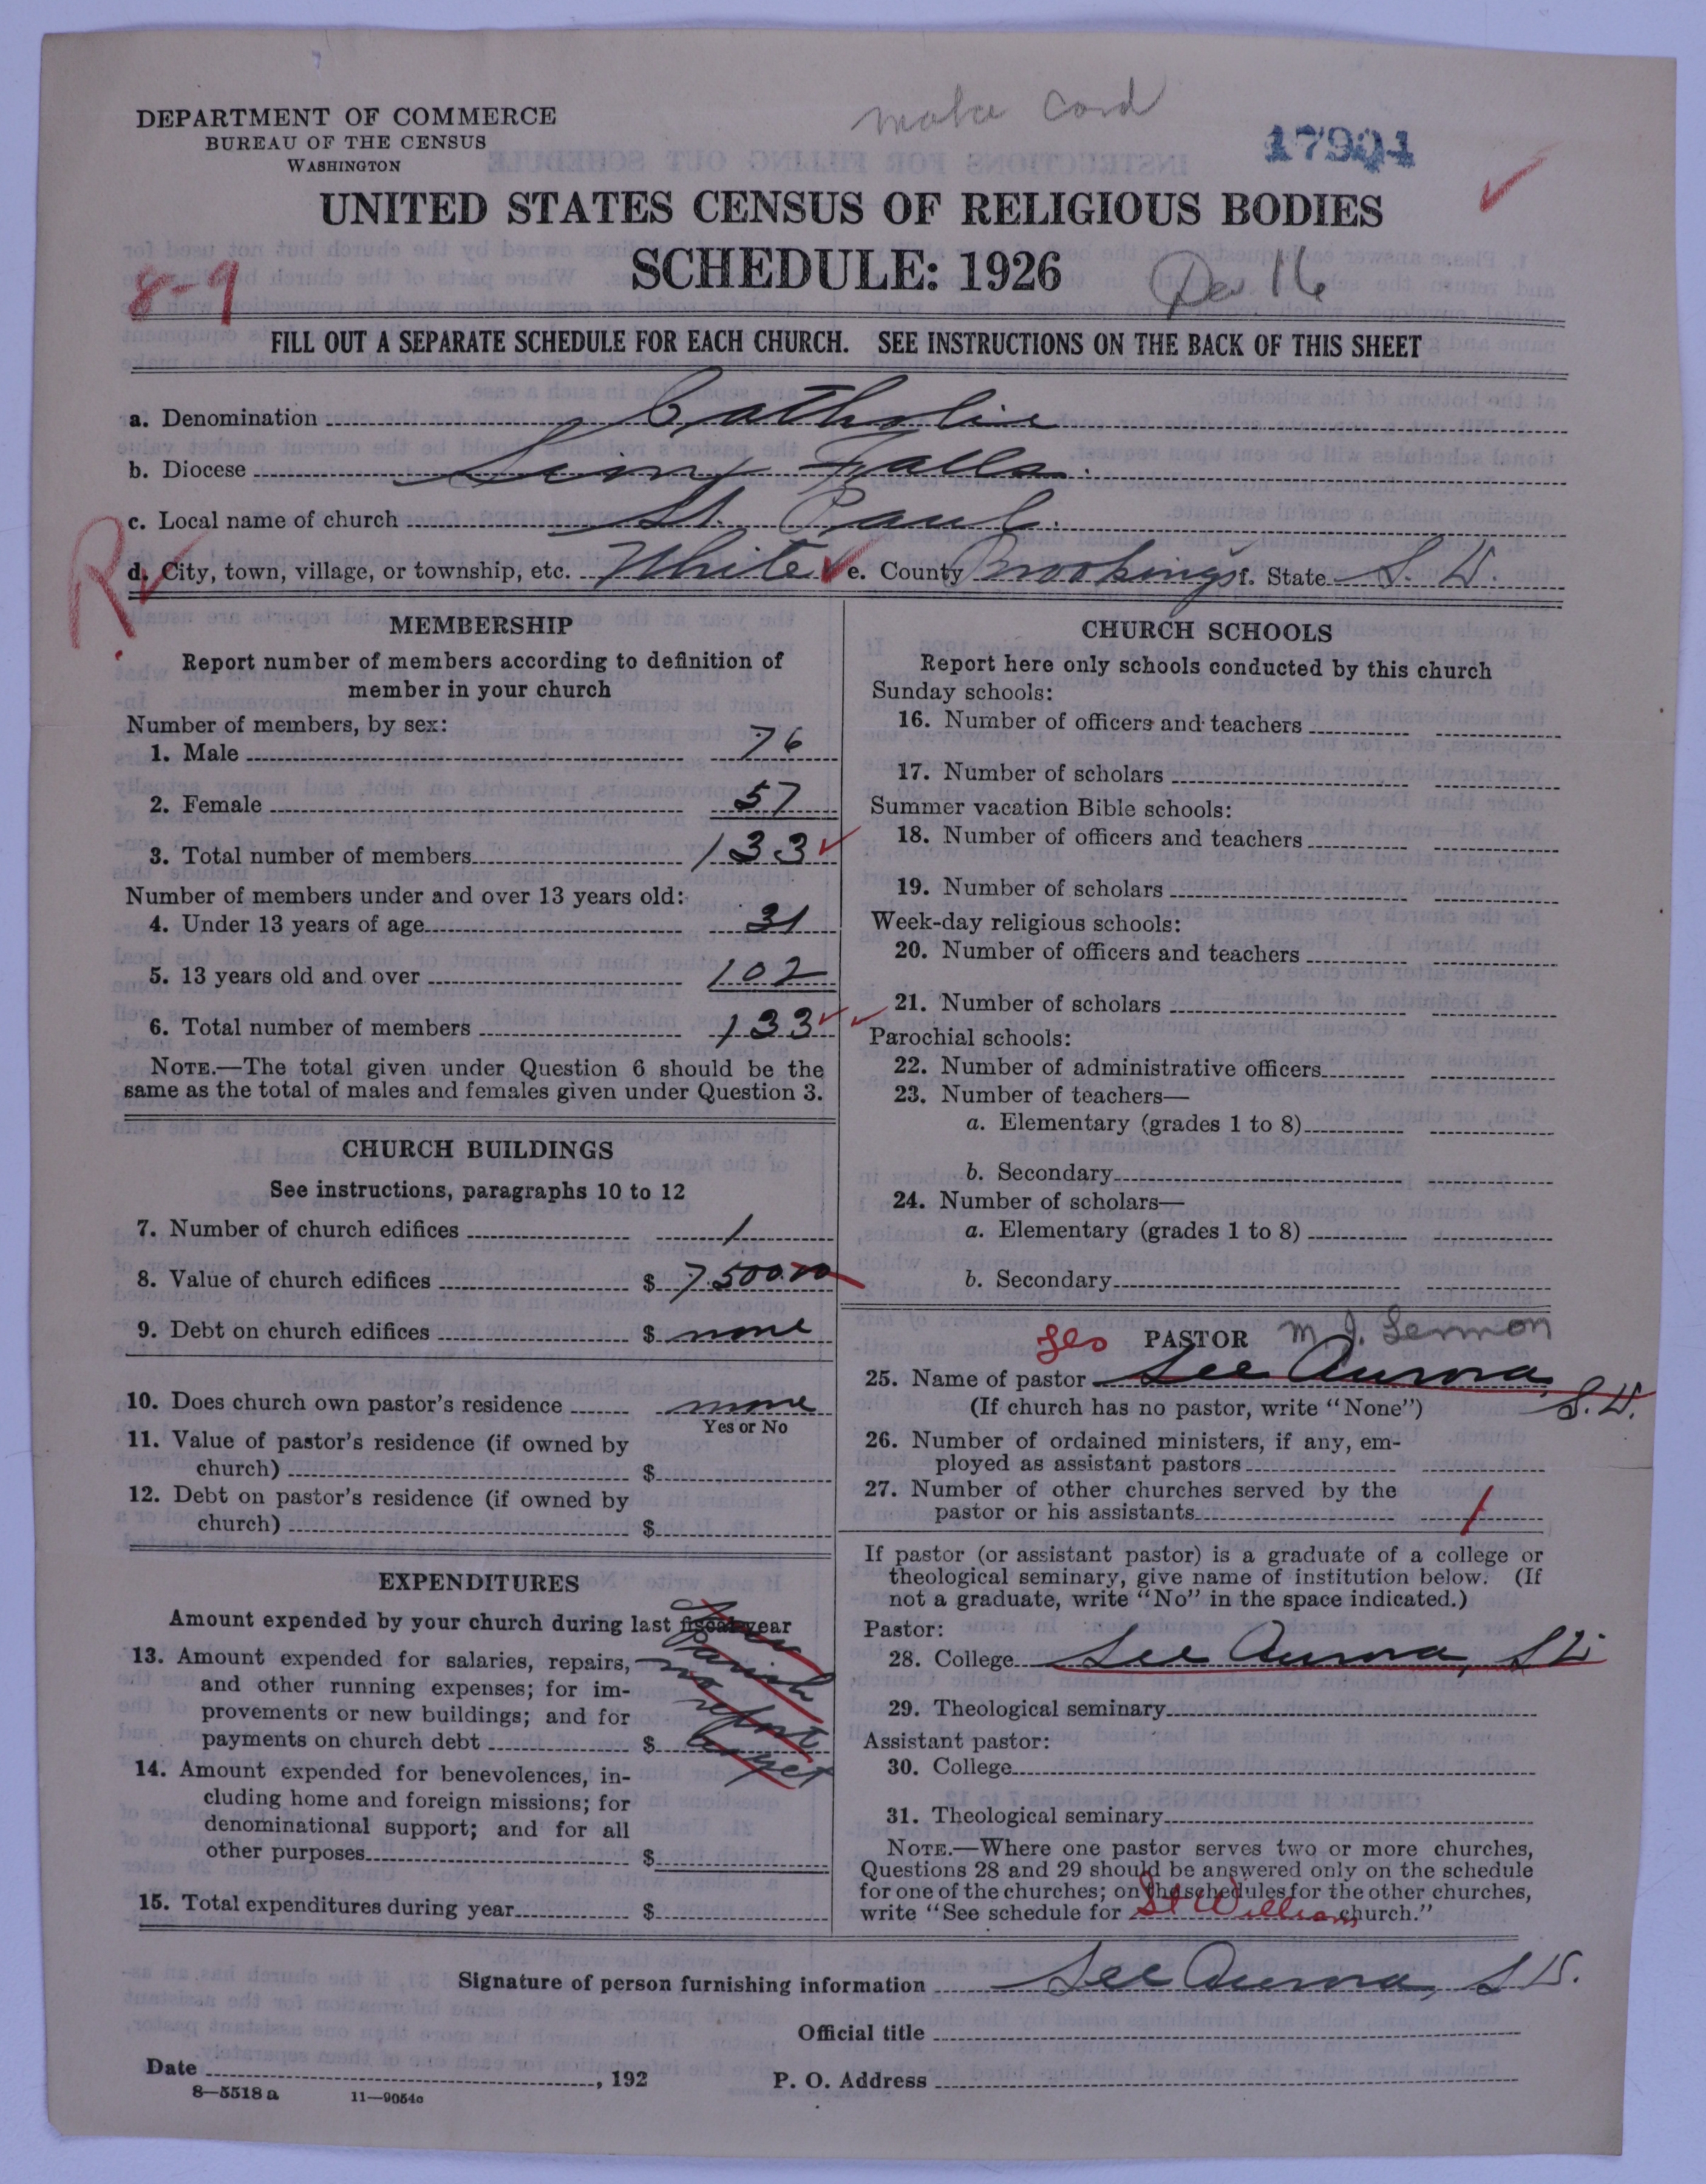 DEPARTMENT OF COMMERCE
BUREAU OF THE CENSUS
WASHINGTON
make card
17904
UNITED STATES CENSUS OF RELIGIOUS BODIES
SCHEDULE: 1926
8-9
Dec 16
FILL OUT A SEPARATE SCHEDULE FOR EACH CHURCH. SEE INSTRUCTIONS ON THE BACK OF THIS SHEET
a. Denomination Catholic
b. Diocese Sioux Falls.
c. Local name of church St. Paul.
R
d. City, town, village, or township, etc. White e. County Brookings f. State S. D.
MEMBERSHIP
Report number of members according to definition of
member in your church
Number of members, by sex:
1. Male 76
2. Female 57
3. Total number of members 133
Number of members under and over 13 years old:
4. Under 13 years of age 31
5. 13 years old and over 102
6. Total number of members 133
NOTE.—The total given under Question 6 should be the
same as the total of males and females given under Question 3.
CHURCH BUILDINGS
See instructions, paragraphs 10 to 12
7. Number of church edifices 1
8. Value of church edifices $ 7500.00
9. Debt on church edifices $ none
10. Does church own pastor's residence none
Yes or No
11. Value of pastor's residence (if owned by
church) $
12. Debt on pastor's residence (if owned by
church) $
EXPENDITURES
Amount expended by your church during last fiscal year
13. Amount expended for salaries, repairs,
and other running expenses; for im-
provements or new buildings; and for
payments on church debt $
Parish
no report
yet
14. Amount expended for benevolences, in-
cluding home and foreign missions; for
denominational support; and for all
other purposes $
15. Total expenditures during year $
CHURCH SCHOOLS
Report here only schools conducted by this church
Sunday schools:
16. Number of officers and teachers
17. Number of scholars
Summer vacation Bible schools:
18. Number of officers and teachers
19. Number of scholars
Week-day religious schools:
20. Number of officers and teachers
21. Number of scholars
Parochial schools:
22. Number of administrative officers
23. Number of teachers—
a. Elementary (grades 1 to 8)
b. Secondary
24. Number of scholars—
a. Elementary (grades 1 to 8)
b. Secondary
Geo PASTOR M J. Lennon
25. Name of pastor See Aurora, S. D.
(If church has no pastor, write "None")
26. Number of ordained ministers, if any, em-
ployed as assistant pastors
27. Number of other churches served by the
pastor or his assistants 1
If pastor (or assistant pastor) is a graduate of a college or
theological seminary, give name of institution below. (If
not a graduate, write "No" in the space indicated.)
Pastor:
28. College See Aurora, S D
29. Theological seminary
Assistant pastor:
30. College
31. Theological seminary
NOTE.—Where one pastor serves two or more churches,
Questions 28 and 29 should be answered only on the schedule
for one of the churches; on the schedules for the other churches,
write "See schedule for St Williams church."
Signature of person furnishing information See Aurora, S D.
Official title
Date , 192
P. O. Address
8—5518 a 11—9054c